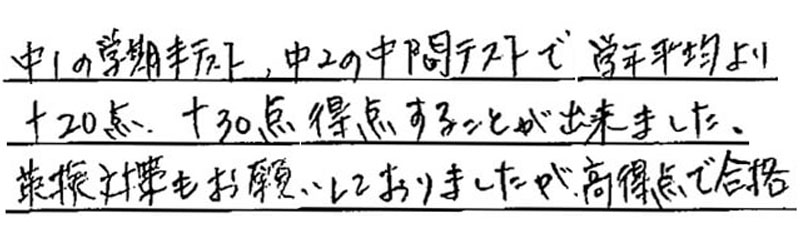 中1の学期末テスト、中2の中間テストで学年平均より
+20点、+30点得点することが出来ました。
英検対策もお願いしておりましたが、高得点で合格